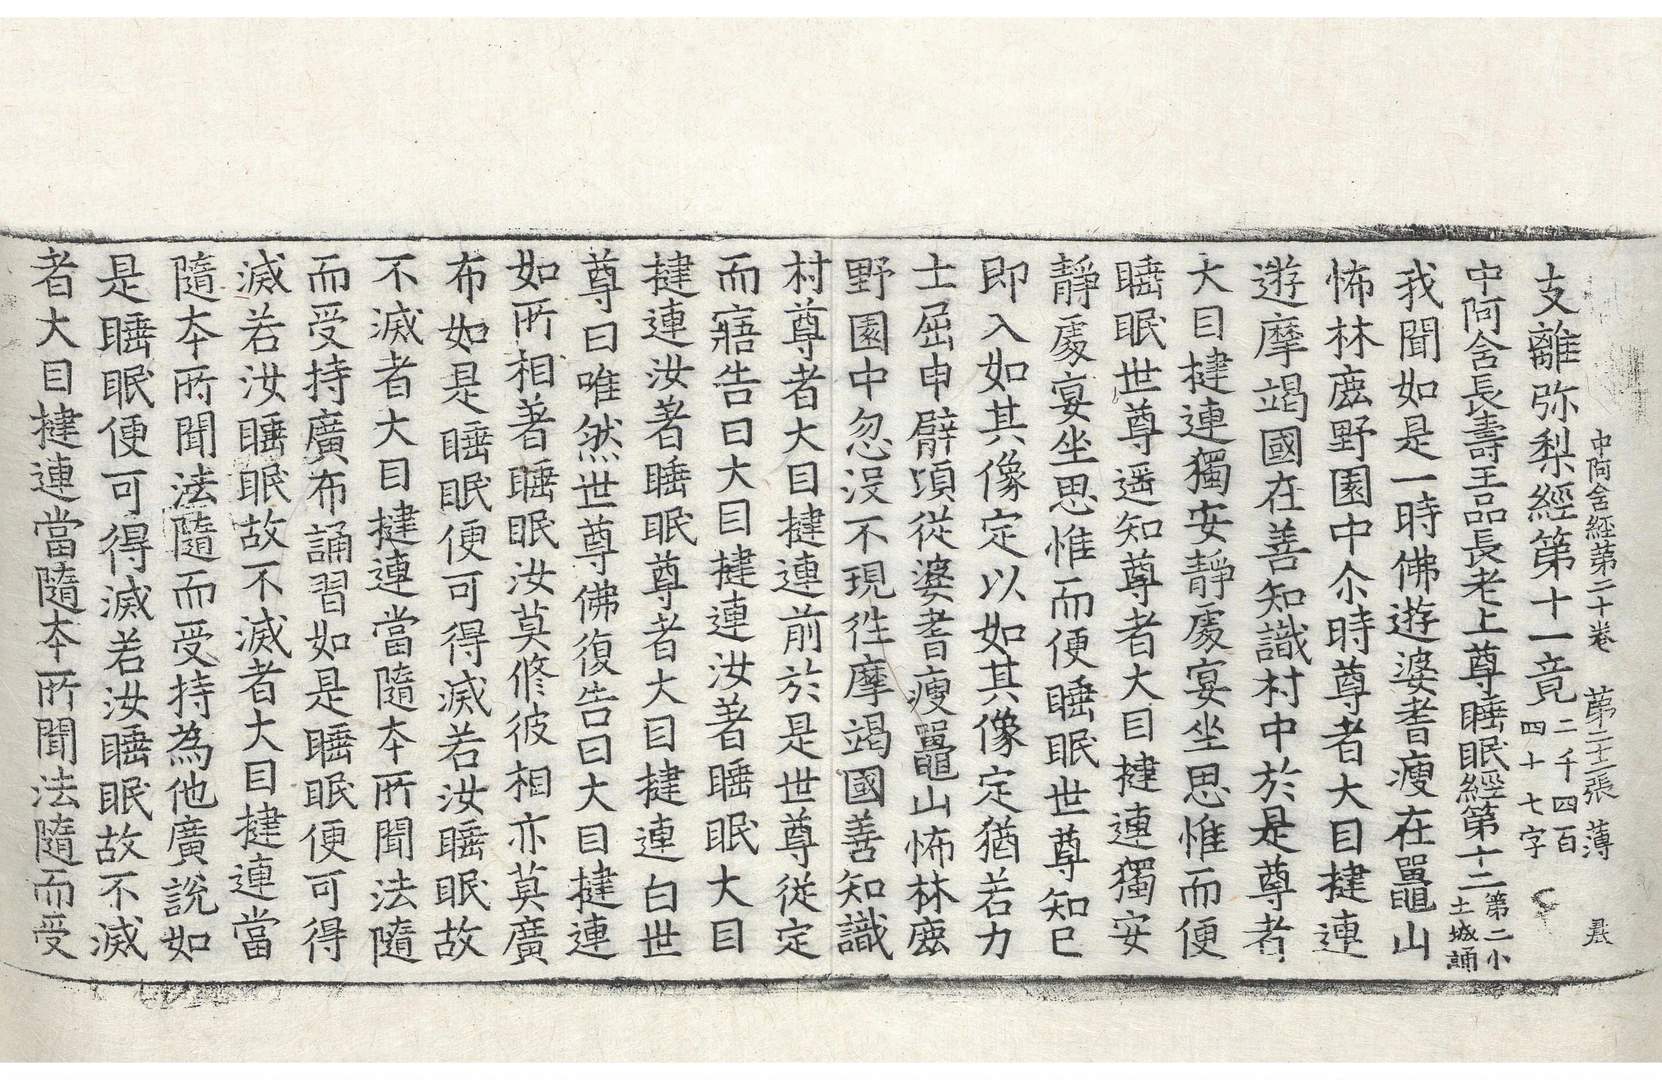 中阿含經第二十卷 第二十二張 薄
支離弥梨經第十一竟 二千四百四十七字
中阿含長壽王品長老上尊睡眠經第十二 第二小土城誦
我聞如是一時佛遊婆耆瘦在鼉山
怖林鹿野園中尒時尊者大目揵連
遊摩竭國在善知識村中於是尊者
大目揵連獨安靜處宴坐思惟而便
睡眠世尊遥知尊者大目揵連獨安
靜處宴坐思惟而便睡眠世尊知已
即入如其像定以如其像定猶若力
士屈申臂頃從婆耆瘦鼉山怖林鹿
野園中忽沒不現往摩竭國善知識
村尊者大目揵連前於是世尊從定
而寤告曰大目揵連汝著睡眠大目
揵連汝著睡眠尊者大目揵連白世
尊曰唯然世尊佛復告曰大目揵連
如所相著睡眠汝莫修彼相亦莫廣
布如是睡眠便可得滅若汝睡眠故
不滅者大目揵連當隨本所聞法隨
而受持廣布誦習如是睡眠便可得
滅若汝睡眠故不滅者大目揵連當
隨本所聞法隨而受持為他廣說如
是睡眠便可得滅若汝睡眠故不滅
者大目揵連當隨本所聞法隨而受